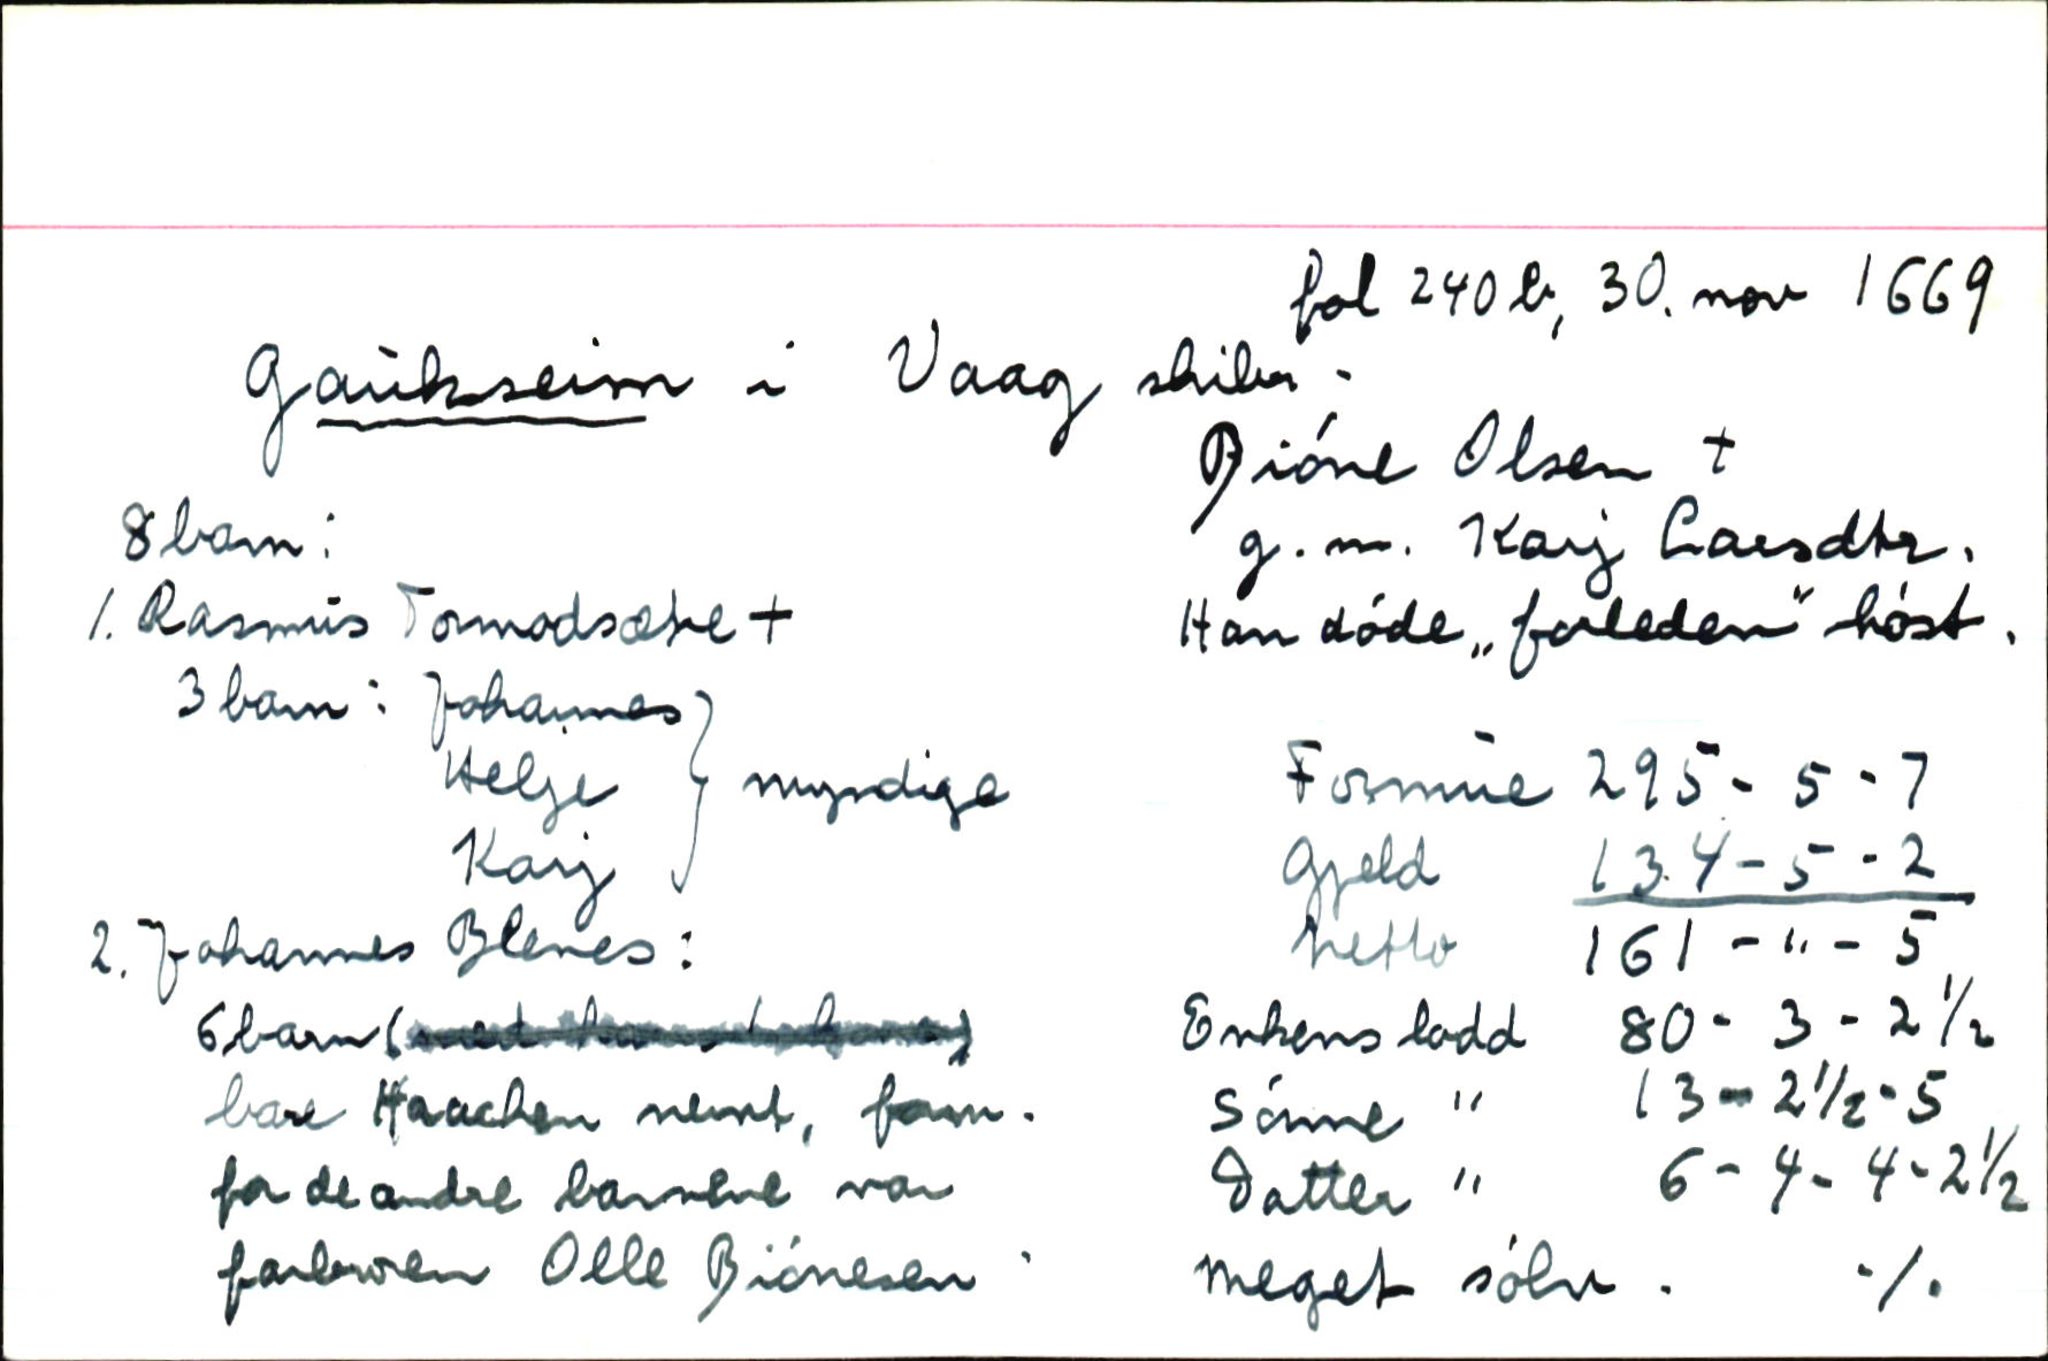 fol 240 b, 30. nov 1669
Gaukseim i Vaag skibr.
Bióne Olsen +
g. m. Karj Larsdtr.
Han dóde „forleden" hóst.
8 barn:
1. Rasmus Tormodsætre +
3 barn: Johannes
Helje } myndige
Karj
2. Johannes Blenes:
6 barn (
bare Haachen nevnt, form.
for de andre barnene var
farbroren Olle Biónesen
Formue 295 - 5 - 7
Gjeld 134 - 5 - 2
Netto 161 - " - 5
Enkens lodd 80 - 3 - 2 1/2
Sónne " 13 - 2 1/2 - 5
Datter " 6 - 4 - 4 - 2 1/2
Meget sólv. ./.